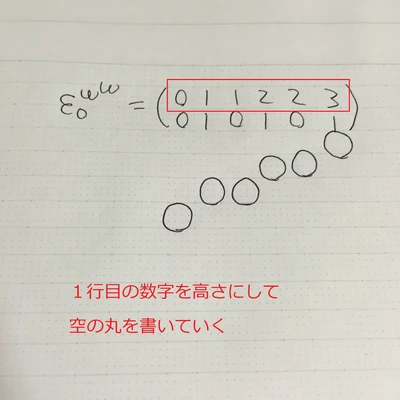 ε₀^ω^ω = (0 1 1 2 2 3
0 1 0 1 0 1)
1行目の数字を高さにして
空の丸を書いていく